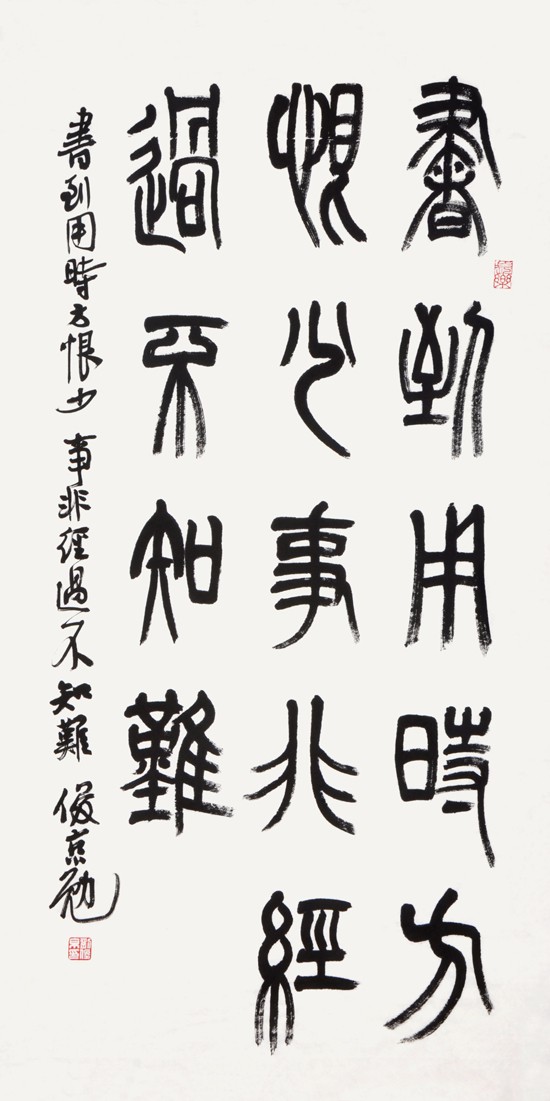 書到用時方
恨少事非經
過不知難
書到用時方恨少事非經過不知難 俊京勉